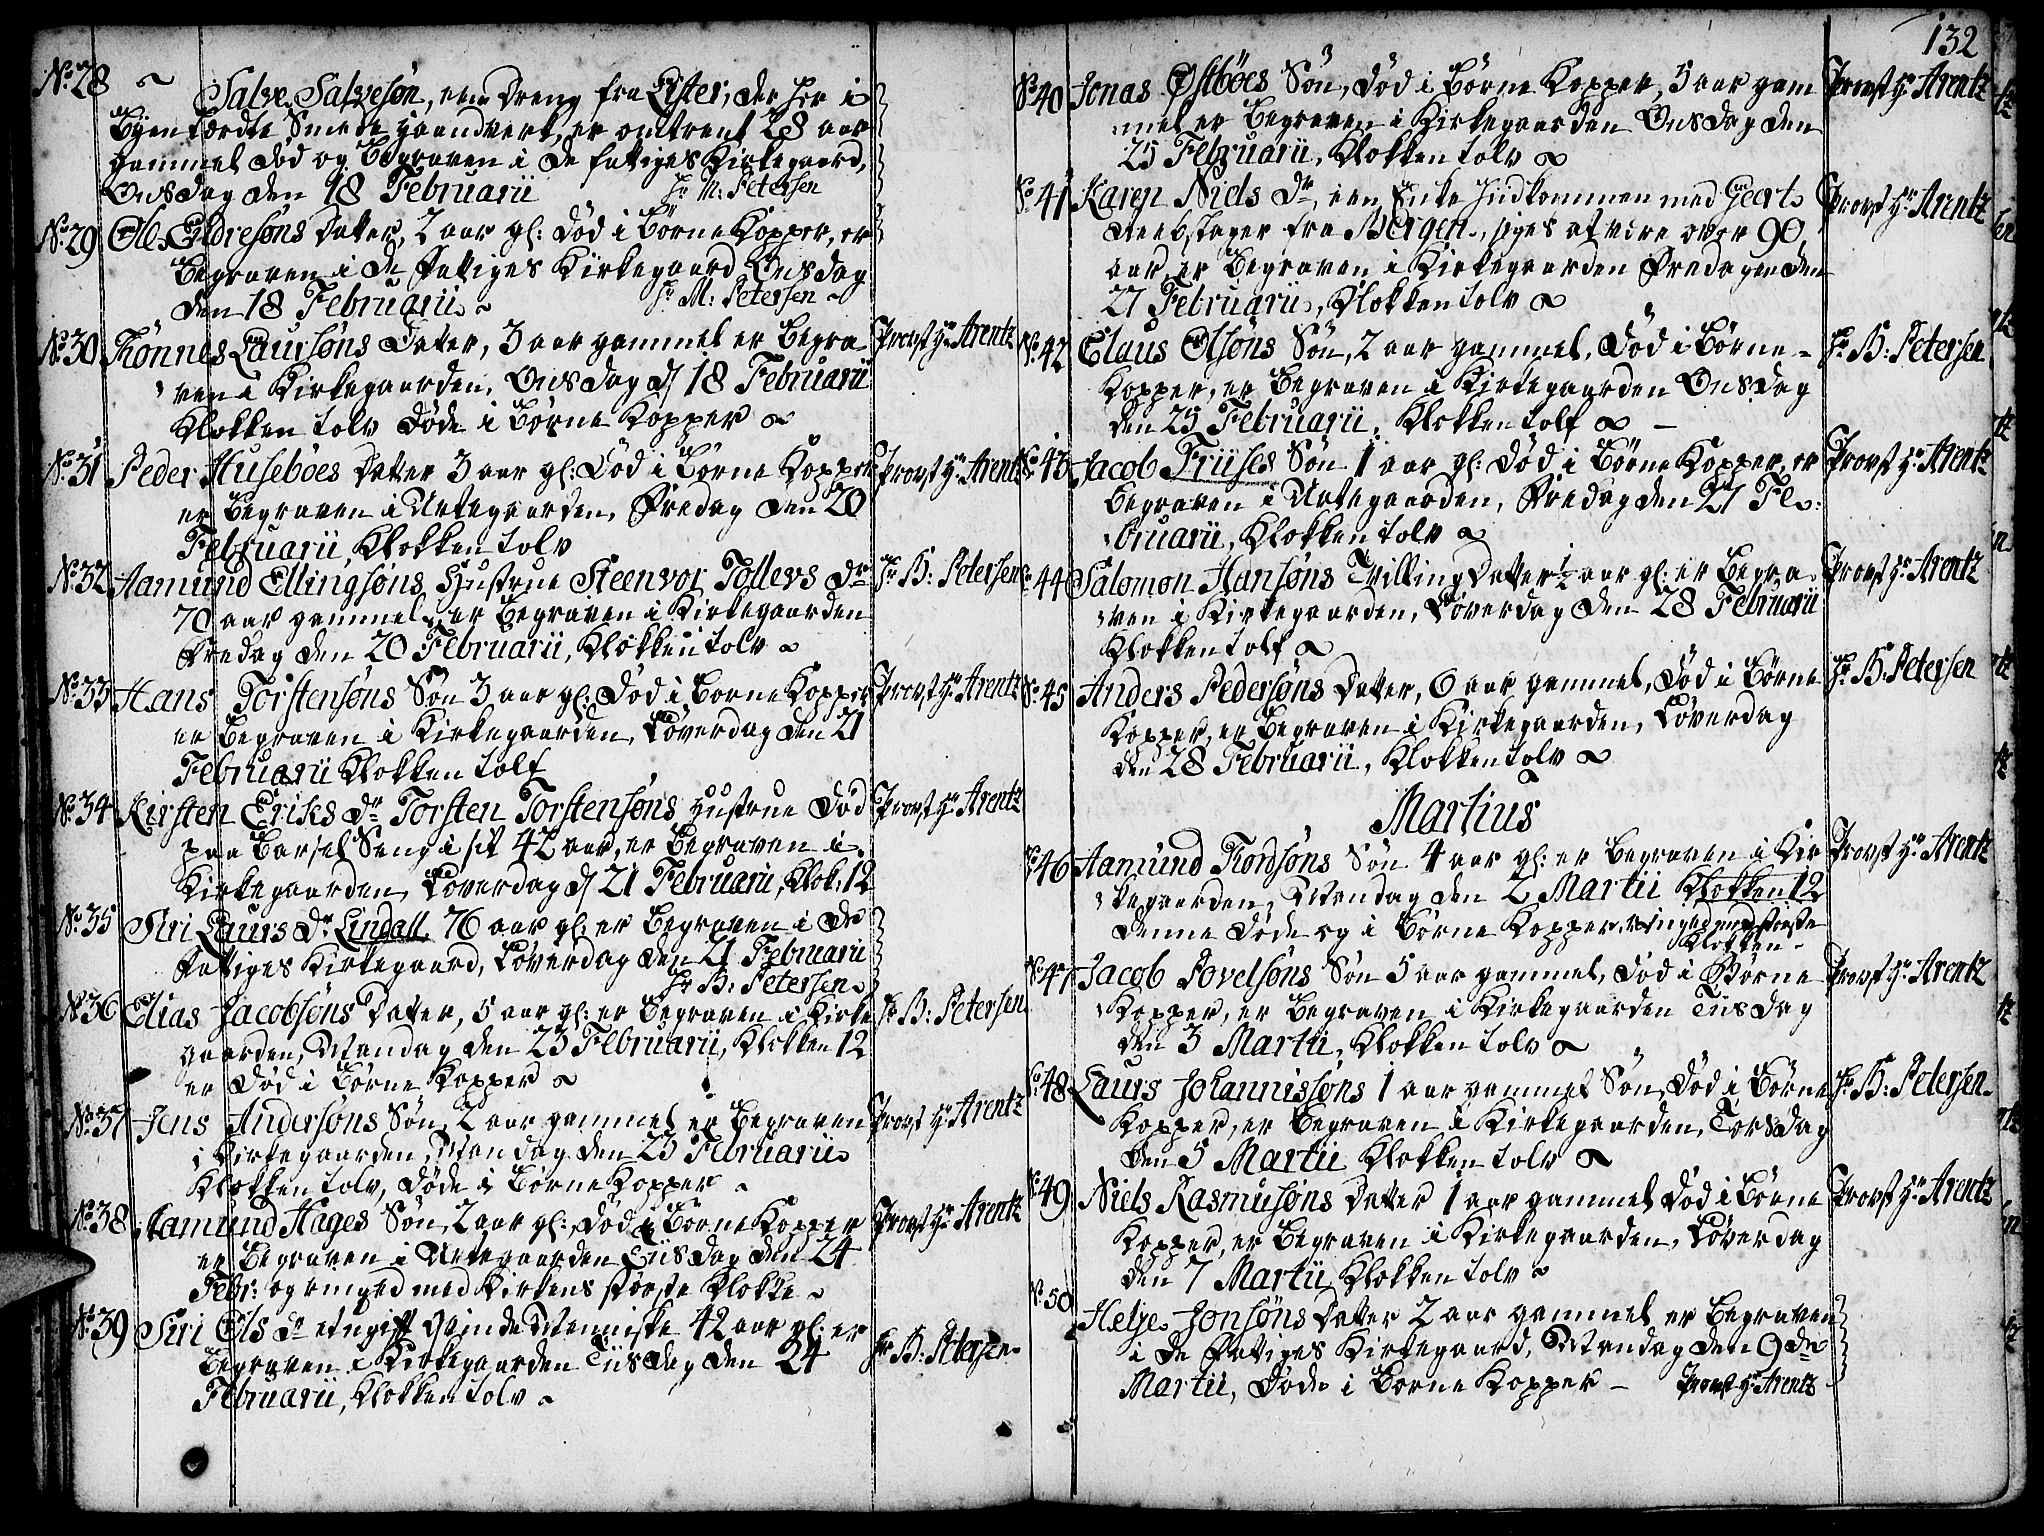 No. 28 Salve Salvesøn, een Dreng fra Lister, der her i
Byen lærdte Smede Haandverk, er omtrent 28 aar
gammel død og Begraven i de fattiges Kirkegaard,
Onsdag den 18 Februarii Hr M: Petersen
No. 29 Ole Eldresøns Datter, 2 aar gl: død i Børne Kopper, er
Begraven i de Fattiges Kirkegaard Onsdag
den 18 Februarii Hr M: Petersen
No. 30 Tønnes Laursøns Datter, 3 aar gammel er Begra- Provst Hr Arentz
ven i Kirkegaarden, Onsdag d/ 18 Februarii
Klokken tolv døde i Børne Kopper
No. 31 Peder Husebøes Datter 3 aar gl: Død i Børne Kopper Provst Hr Arentz
er Begraven i Urtegaarden, Fredag den 20
Februarii, Klokken tolv
No. 32 Aamund Ellingsøns Hustrue Steenvor Tollevs Dr Hr B: Petersen
70 aar gammel, er Begraven i Kirkegaarden
Fredag den 20 Februarii, Klokken tolv
No. 33 Hans Torstensøns Søn 3 aar gl: Død i Børne Kopper Provst Hr Arentz
er Begraven i Kirkegaarden, Løverdag den 21
Februarii Klokken tolf
No. 34 Kirsten Eriks Dr Torsten Torstensøns Hustrue død Provst Hr Arentz
paa Barsel Seng i sit 42 aar, er Begraven i
Kirkegaarden, Løverdag d/ 21 Februarii, Klok: 12
No. 35 Siri Laurs Dr Lindall, 76 aar gl: er Begraven i de
Fattiges Kirkegaard, Løverdag den 21 Februarii
Hr B: Petersen
No. 36 Elias Jacobsøns Datter, 5 aar gl: er Begraven i Kirke Hr B: Petersen
gaarden, Mandag den 23 Februarii, Klokken 12
er Død i Børne Kopper
No. 37 Jens Andersøns Søn, 2 aar gammel er Begraven Provst Hr Arentz
i Kirkegaarden, Mandag den 23 Februarii
Klokken tolv, døde i Børne Kopper
No. 38 Aamund Hages Søn, 2 aar gl:, død i Børne Kopper Provst Hr Arentz
er Begraven i Urtegaarden Tiisdag den 24
Febr: og ringed med Kirkens største Klokke
No. 39 Siri Ols Dr et ugift Qvinde Menniske 42 aar gl: er
Begraven i Kirkegaarden Tiisdag den 24 Hr B: Petersen
Februarii, Klokken tolv
132
No. 40 Jonas Østbøes Søn, død i Børne Kopper, 5 aar gam Provst Hr Arentz
mel er Begraven i Kirkegaarden Onsdag den
25 Februarii, Klokken tolv
No. 41 Karen Niels Dr, een Enke Indkommen med Geert Provst Hr Arentz
Reebslager fra Bergen, siges at være over 90
aar, er Begraven i Kirkegaarden Fredagen den
27 Februarii, Klokken tolv
No. 42 Claus Olsøns Søn, 2 aar gammel, død i Børne Hr B: Petersen
Kopper, er Begraven i Kirkegaarden Onsdag
den 25 Februarii, Klokken tolf
No. 43 Jacob Friises Søn 1 aar gl: død i Børne Kopper, er Provst Hr Arentz
Begraven i Urtegaarden, Fredag den 27 Fe-
bruarii, Klokken tolv
No. 44 Salomon Hansøns Tvilling Datter ½ aar gl: er Begra- Provst Hr Arentz
ven i Kirkegaarden, Løverdag den 28 Februarii
Klokken tolf
No. 45 Anders Pedersøns Datter, 6 aar gammel, død i Børne Hr B: Petersen
Kopper, er Begraven i Kirkegaarden, Løverdag
den 28 Februarii, Klokken tolv
Martius
No. 46 Aamund Tordsøns Søn 4 aar gl: er Begraven i Kir Provst Hr Arentz
kegaarden, Mandag den 2 Martii Klokken 12
denne døde og i Børne Kopper, ringed med største
Klokken
No. 47 Jacob Povelsøns Søn 5 aar gammel, død i Børne Provst Hr Arentz
Kopper, er Begraven i Kirkegaarden Tiisdag
den 3 Martii, Klokken tolv
No. 48 Laurs Johannissøns 1 aar gammel Søn, død i Børne Hr B: Petersen
Kopper, er Begraven i Kirkegaarden, Torsdag
den 5 Martii Klokken tolv
No. 49 Niels Rasmusøns Datter 1 aar gammel død i Børne Provst Hr Arentz
Kopper, er Begraven i Kirkegaarden, Løverdag
den 7 Martii, Klokken tolv
No. 50 Helje Jonsøns Datter 2 aar gammel er Begraven
i de Fattiges Kirkegaard, Mandag den 9de
Martii, døde i Børne Kopper Provst Hr Arentz